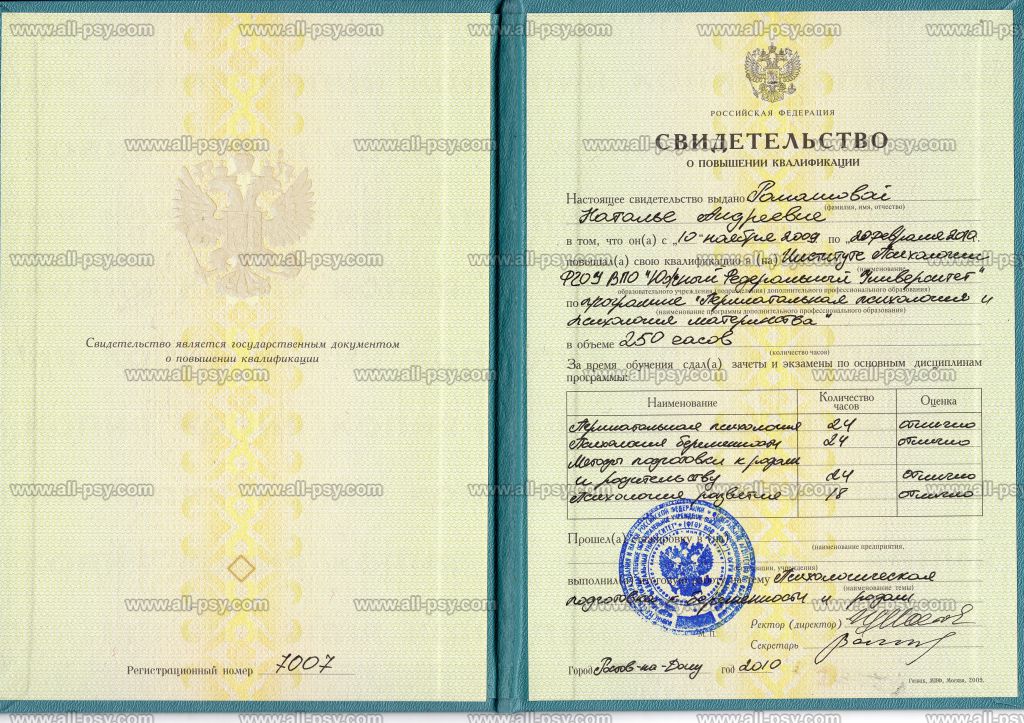 Свидетельство является государственным документом
о повышении квалификации
Регистрационный номер 7007
РОССИЙСКАЯ ФЕДЕРАЦИЯ
СВИДЕТЕЛЬСТВО
О ПОВЫШЕНИИ КВАЛИФИКАЦИИ
Настоящее свидетельство выдано Ромашовой
(фамилия, имя, отчество)
Наталье Андреевне
в том, что он(а) с „10" ноября 2009 по „20 февраля 2010г.
повышал(а) свою квалификацию в (на) Институте Психологии
(наименование
ФГОУ ВПО "Южный Федеральный Университет"
образовательного учреждения (подразделения) дополнительного профессионального образования)
по программе "Перинатальная психология и
(наименование программы дополнительного профессионального образования)
психология материнства"
в объеме 250 часов
(количество часов)
За время обучения сдал(а) зачеты и экзамены по основным дисциплинам
программы:
Наименование Количество часов Оценка
Перинатальная психология 24 отлично
Психология беременности 24 отлично
Методы подготовки к родам
и родительству 24 отлично
Психология развития 18 отлично
Прошел(а) стажировку в (на)
(наименование предприятия,
организации, учреждения)
выполнил(а) итоговую работу на тему Психологическая
(наименование темы)
подготовка к беременности и родам
Ректор (директор)
М. П.
Секретарь
Город Ростов-на-Дону год 2010
Гознак, МПФ, Москва, 2005.
www.all-psy.com